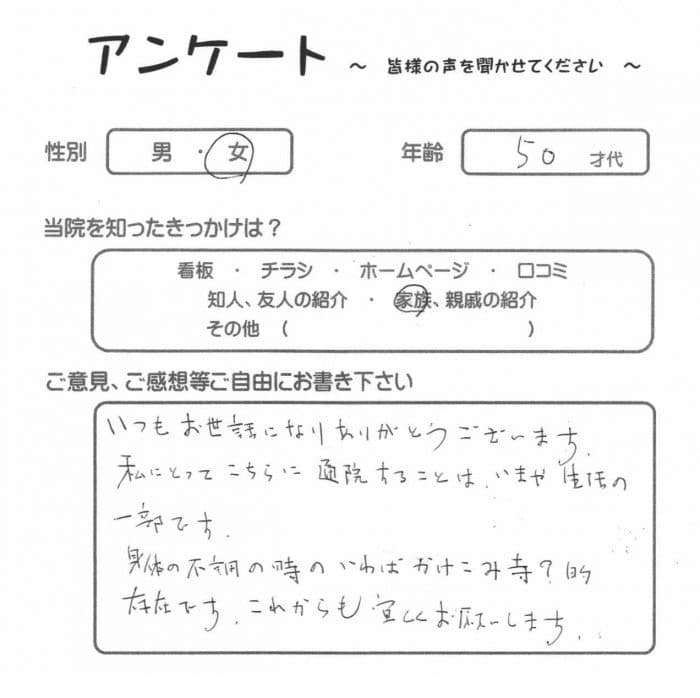 アンケート ～ 皆様の声を聞かせてください ～
性別 男 ・ 女 年齢 50 才代
当院を知ったきっかけは？
看板 ・ チラシ ・ ホームページ ・ 口コミ
知人、友人の紹介 ・ 家族、親戚の紹介
その他 （ ）
ご意見、ご感想等ご自由にお書き下さい
いつもお世話になりありがとうございます.
私にとってこちらに通院することは、いまや生活の
一部です.
身体の不調の時のいわばかけこみ寺？的
存在です. これからも宜しくお願いします.